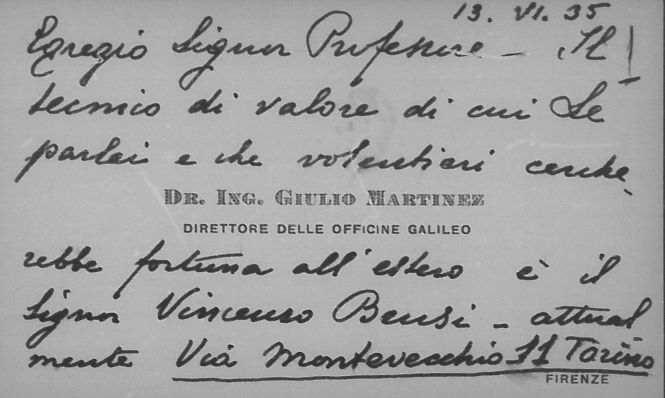 13. VI. 35
Egregio Signor Professore - Il
tecnico di valore di cui Le
parlai e che volentieri cerche-
DR. ING. GIULIO MARTINEZ
DIRETTORE DELLE OFFICINE GALILEO
rebbe fortuna all'estero è il
Signor Vincenzo Bensi - attual
mente Via Montevecchio 11 Torino
FIRENZE